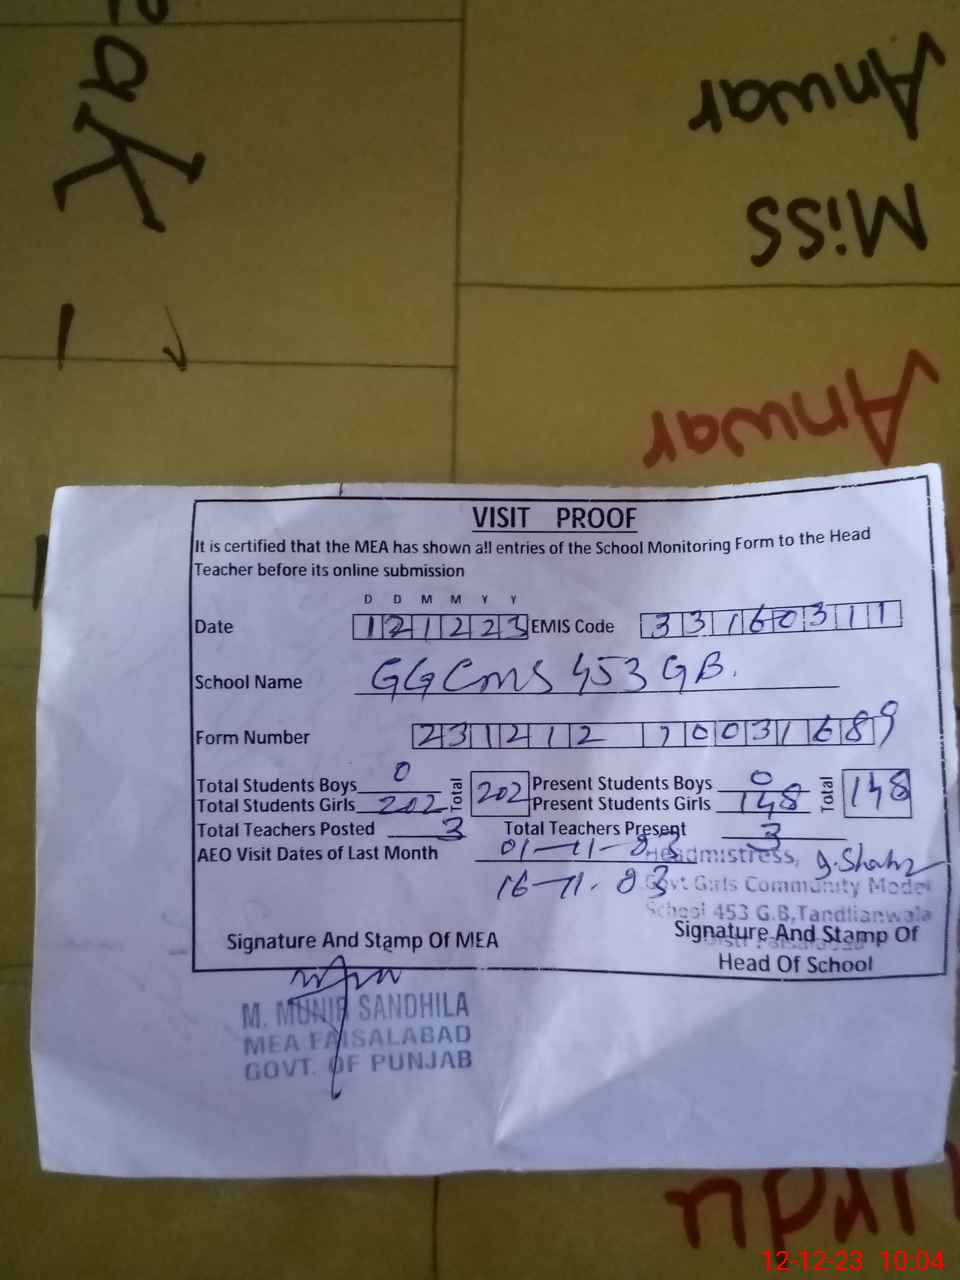 Anwar
Miss
Anwar
VISIT PROOF
It is certified that the MEA has shown all entries of the School Monitoring Form to the Head
Teacher before its online submission
D D M M Y Y
Date 121223 EMIS Code 33160311
School Name GGCMS 453 GB.
Form Number 231212 10031689
Total Students Boys 0 Total 202 Present Students Boys 0 Total 148
Total Students Girls 202 Present Students Girls 148
Total Teachers Posted 3 Total Teachers Present 3
AEO Visit Dates of Last Month 01-11-23
16-11-23
Headmistress,
Govt Girls Community Model
School 453 G.B, Tandlianwala
Distt Faisalabad
Signature And Stamp Of MEA
Signature And Stamp Of
Head Of School
M. MUNIR SANDHILA
MEA FAISALABAD
GOVT. OF PUNJAB
Urdu
12-12-23 10:04